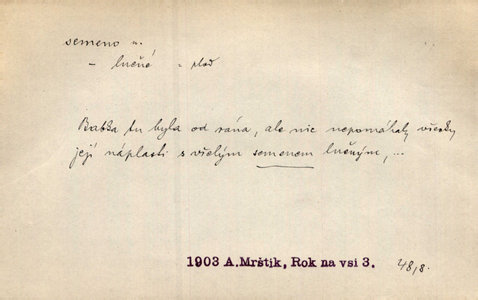 semeno n.
- lněné - plod
Babka tu byla od rána, ale nic nepomáhaly všecky
její náplasti s vřelým semenem lněným, ...
1903 A.Mrštík, Rok na vsi 3. 48,8.